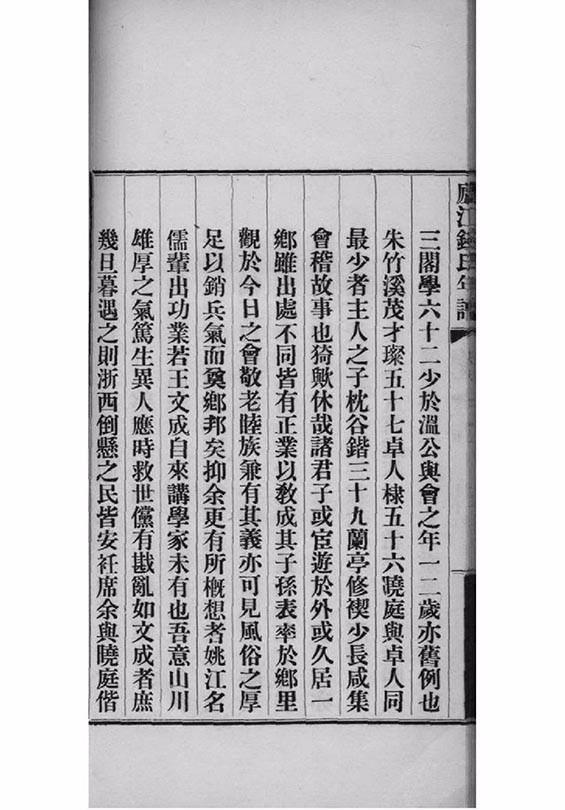 廬江錢氏年譜
三閣學六十二少於溫公與會之年一二歲亦舊例也
朱竹溪茂才璨五十七卓人棣五十六曉庭與卓人同
最少者主人之子枕谷鍇三十九蘭亭修禊少長咸集
會稽故事也猗歟休哉諸君子或宦遊於外或久居一
鄉雖出處不同皆有正業以教成其子孫表率於鄉里
觀於今日之會敬老睦族兼有其義亦可見風俗之厚
足以銷兵氣而奠鄉邦矣抑余更有所概想者姚江名
儒輩出功業若王文成自來講學家未有也吾意山川
雄厚之氣篤生異人應時救世儻有戡亂如文成者庶
幾旦暮遇之則浙西倒懸之民皆安衽席余與曉庭偕